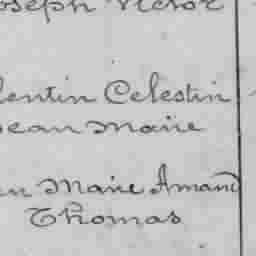 oseph Victor
lentin Celestin
Jean Marie
en Marie Amand
Thomas